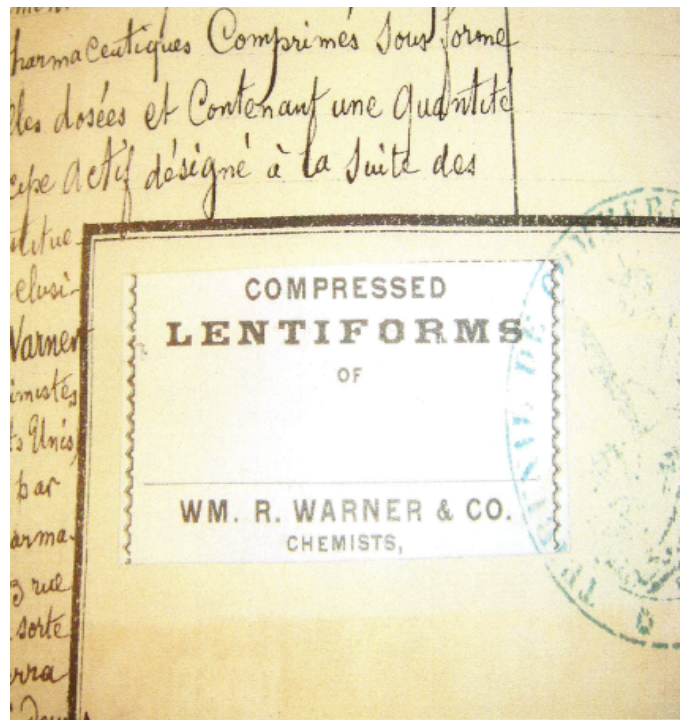 harmaceutiques Comprimés sous forme
les dosées et Contenant une quantité
cipe actif désigné à la suite des
stitue
clusi-
Warner
imistes
ts Unis
par
arma-
3 rue
sorte
erra
COMPRESSED
LENTIFORMS
OF
WM. R. WARNER & CO.
CHEMISTS,
TRIBUNAL DE COMMERCE